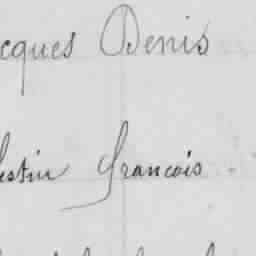 cques Denis
estin francois